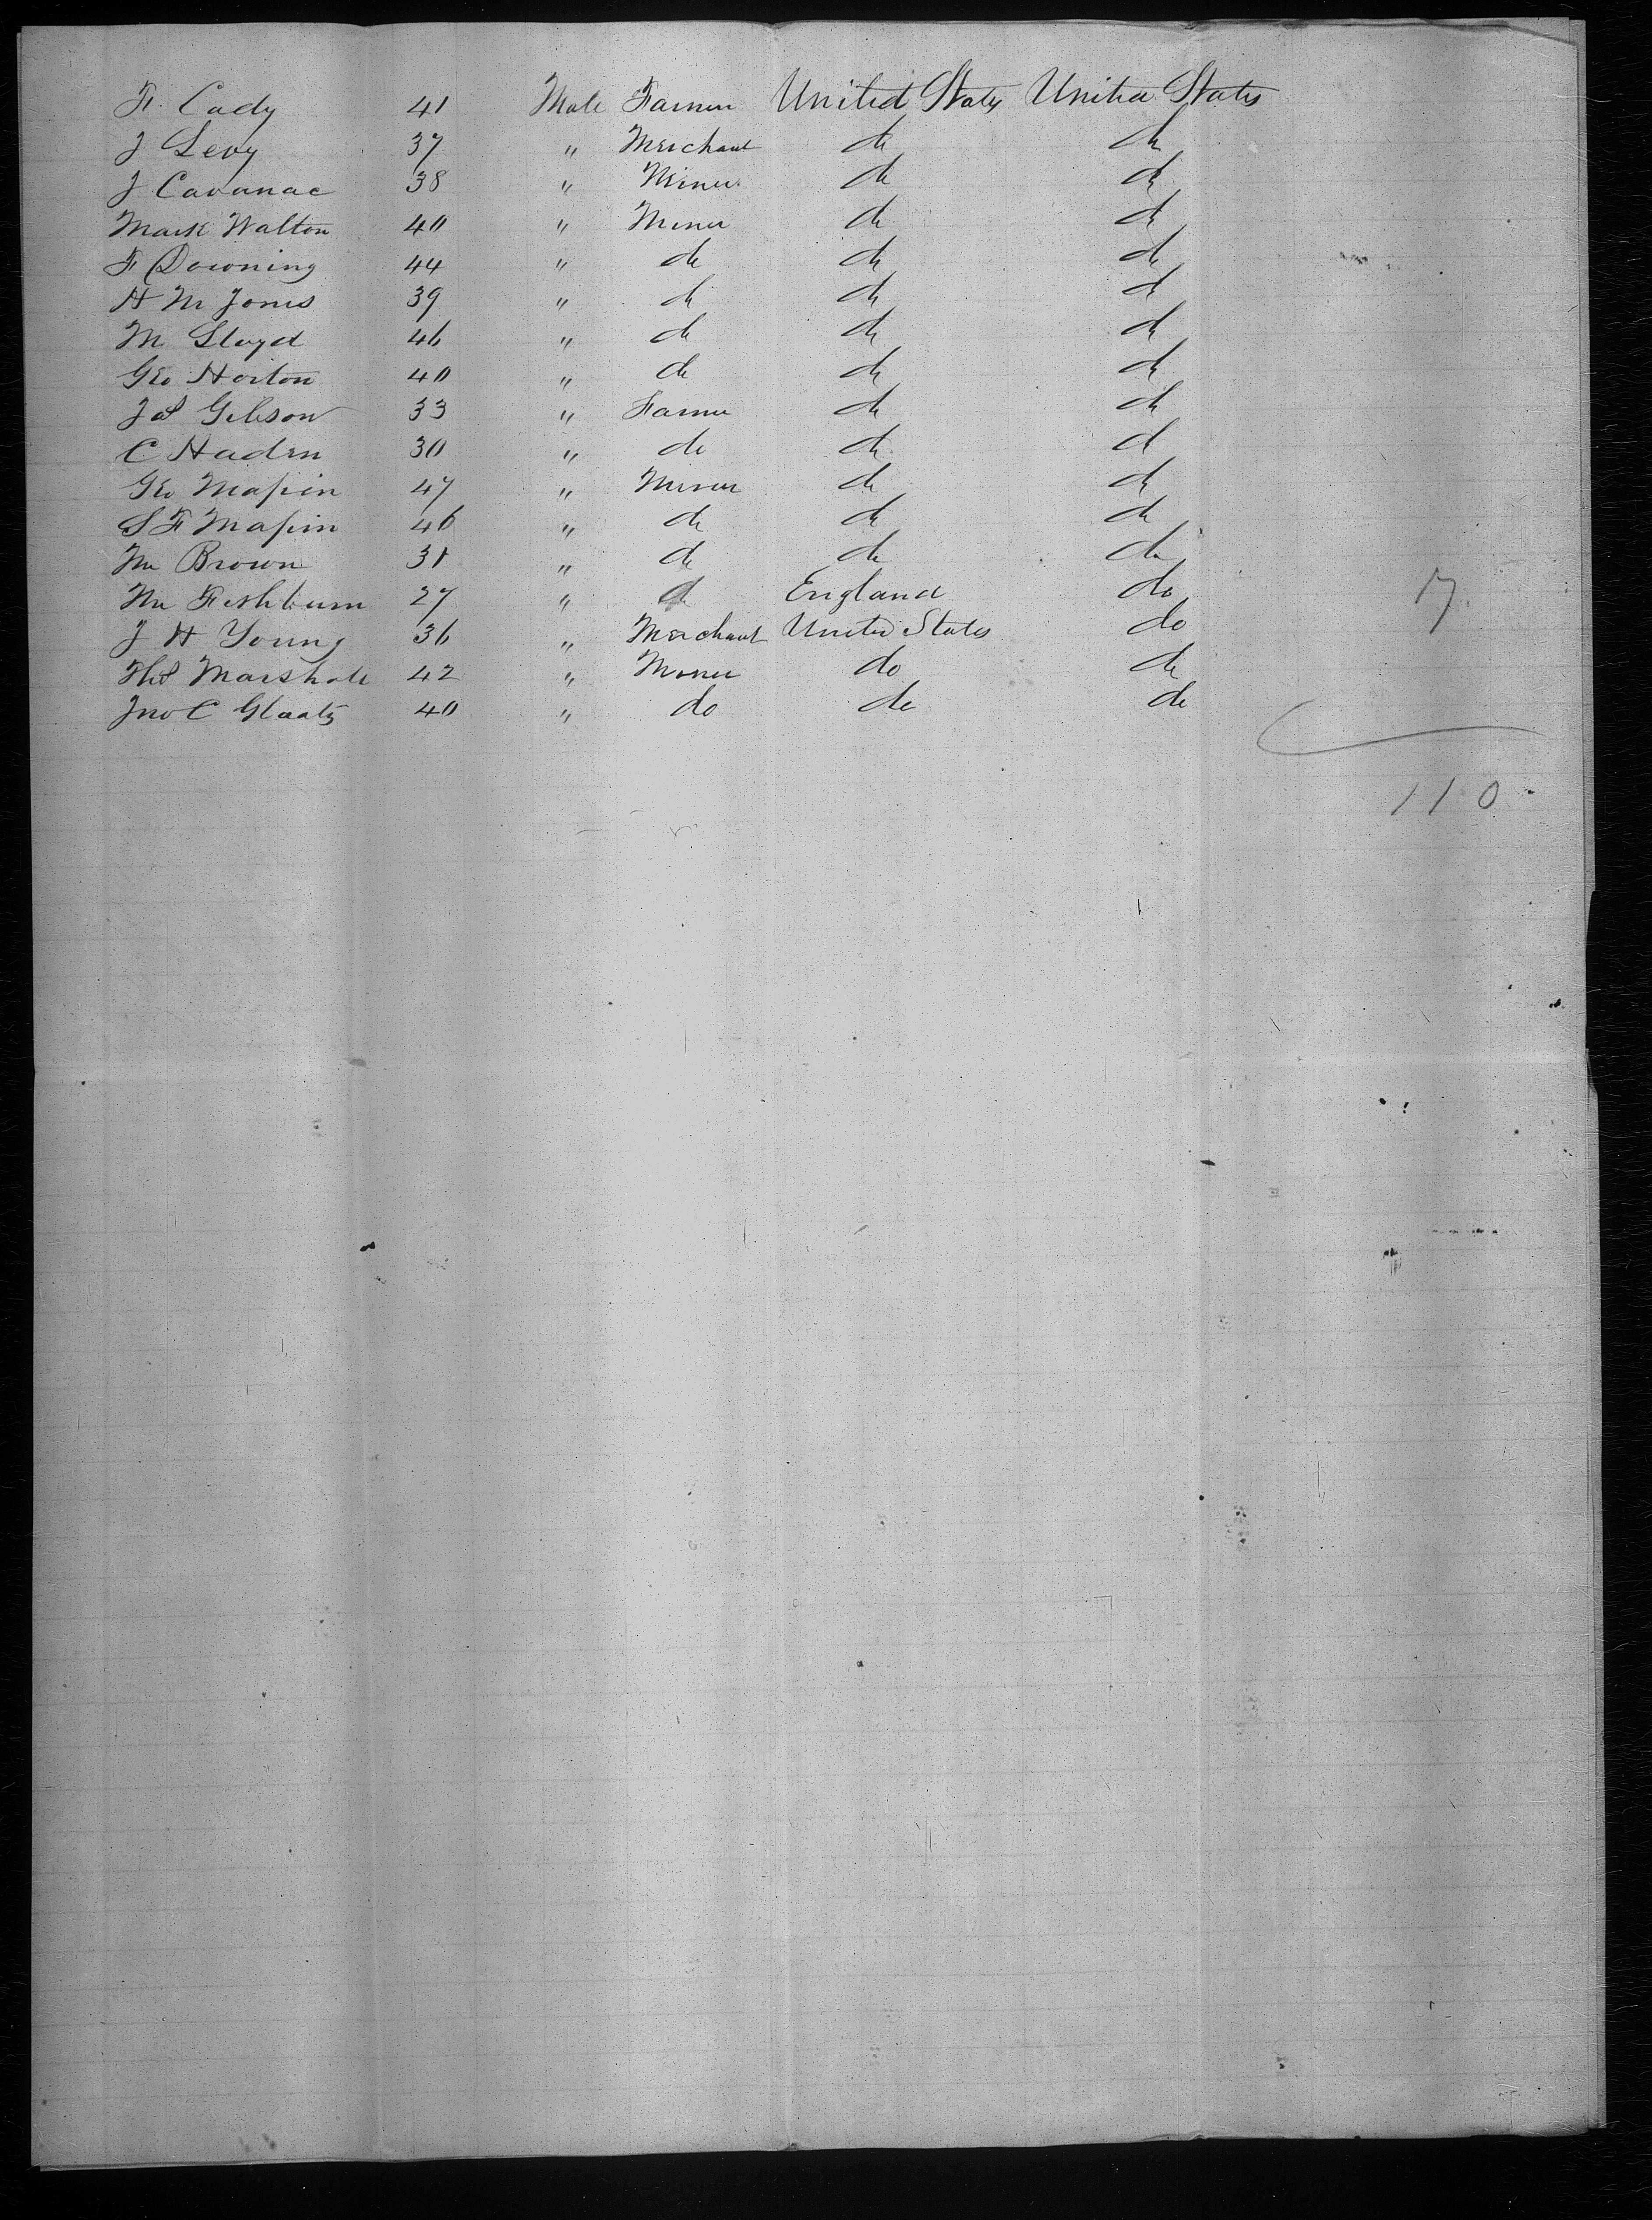 F. Cady 41 Male Farmer United States United States
J Levy 37 " Merchant do do
J Cavanac 38 " Miner do do
Mark Walton 40 " Miner do do
F Downing 44 " do do do
H M Jones 39 " do do do
M Lloyd 46 " do do do
Geo Horton 40 " do do do
J S Gibson 33 " Farmer do do
C Haden 30 " do do do
Geo Mapin 47 " Miner do do
S F Mapin 46 " do do do
Wm Brown 31 " do do do
Wm Fishburn 27 " do England do
J H Young 36 " Merchant United States do
Marshall 42 " Miner do do
Jno C Glaatz 40 " do do do
7
110